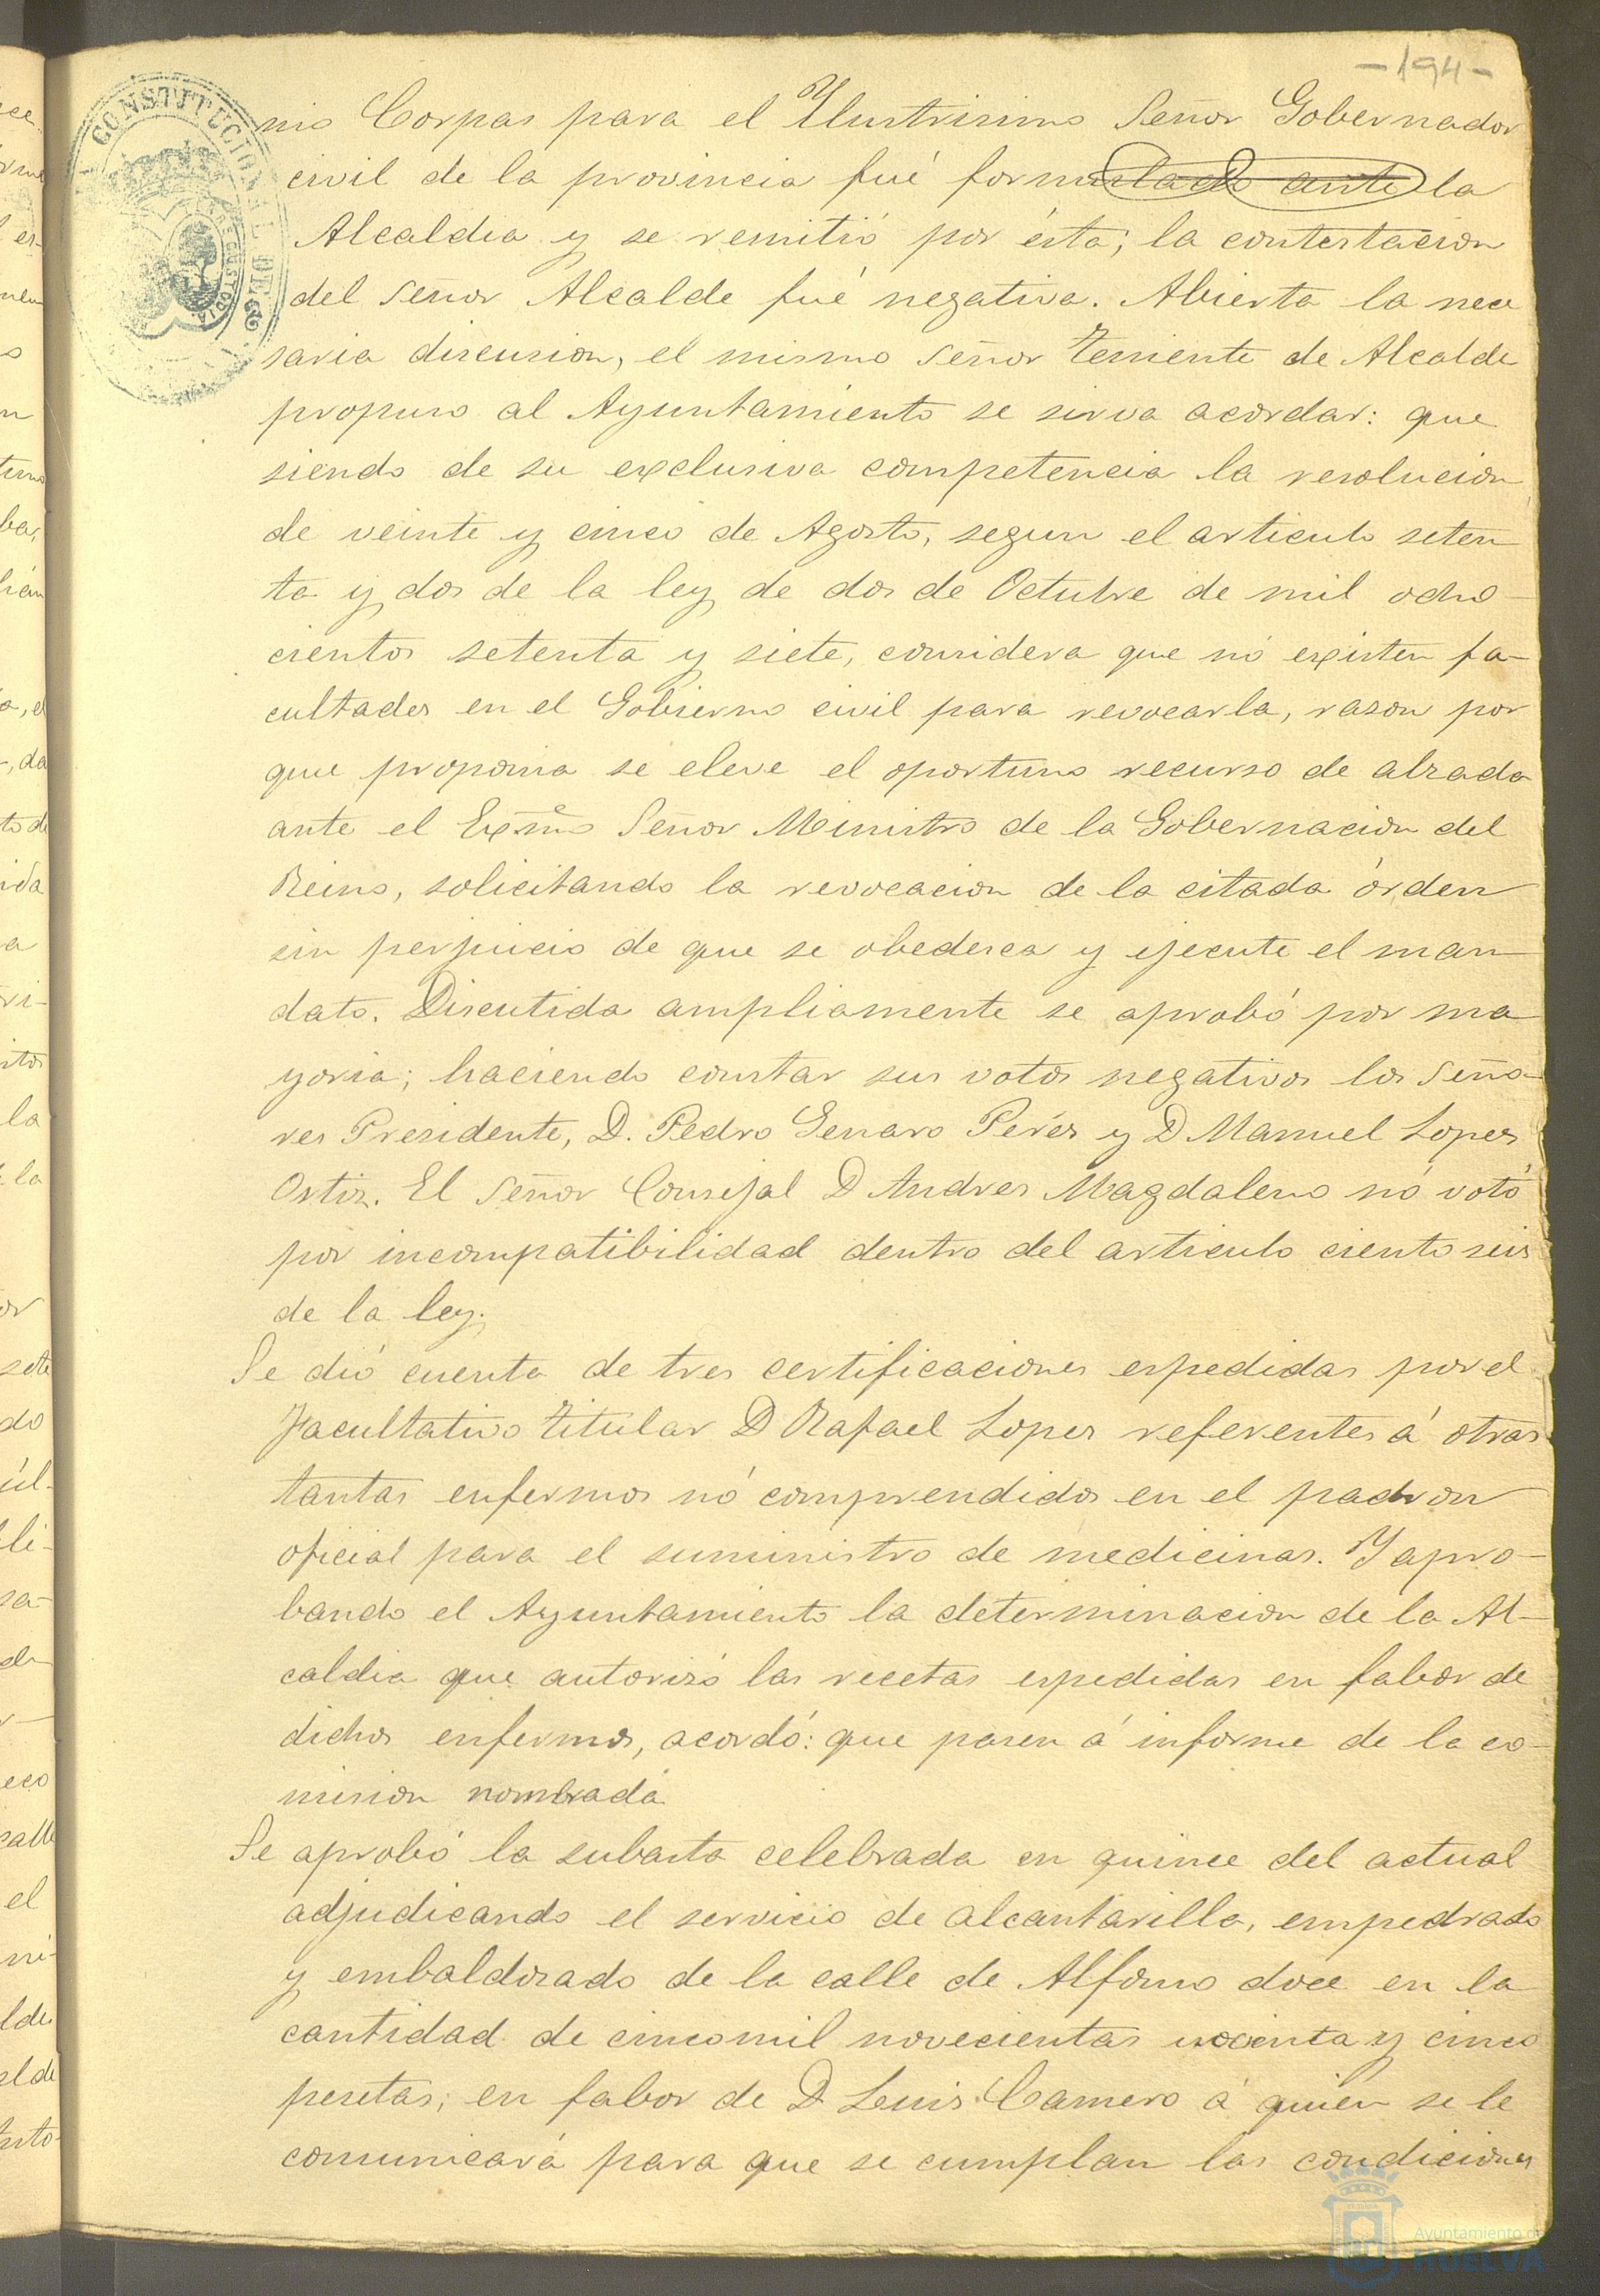 -194-
CONSTITUCIONAL DE
nio Corpas para el Ylustrisimo Señor Gobernador
civil de la provincia fué formulado ante la
Alcaldia y se remitió por ésta; la contestacion
del Señor Alcalde fué negativa. Abierta la nece
saria discusion, el mismo Señor Teniente de Alcalde
propuso al Ayuntamiento se sirva acordar: que
siendo de su exclusiva competencia la resolucion
de veinte y cinco de Agosto, segun el articulo seten
ta y dos de la ley de dos de Octubre de mil ocho-
cientos setenta y siete, considera que nó existen fa-
cultades en el Gobierno civil para revocarla, rason por
que proponia se eleve el oportuno recurso de alzada
ante el Excmo Señor Ministro de la Gobernacion del
Reino, solicitando la revocacion de la citada órden
sin perjuicio de que se obedesca y ejecute el man
dato. Discutida ampliamente se aprobó por ma
yoria; haciendo constar sus votos negativos los Seño-
res Presidente, D. Pedro Genaro Pérez y D Manuel Lopez
Ortiz. El Señor Consejal D Andres Magdaleno nó votó
por incompatibilidad dentro del articulo ciento seis
de la ley.
Se dió cuenta de tres certificaciones espedidas por el
Facultativo titular D Rafael Lopez referentes á otras
tantas enfermos nó comprendidos en el padron
oficial para el suministro de medicinas. Y apro-
bando el Ayuntamiento la determinacion de la Al-
caldia que autorisó las recetas espedidas en fabor de
dichos enfermos, acordó: que pasen á informe de la co-
mision nombrada
Se aprobó la subasta celebrada en quince del actual
adjudicando el servicio de alcantarilla, empedrado
y embaldosado de la calle de Alfonso doce en la
cantidad de cincomil novecientas y cinco
pesetas; en fabor de D Luis Camero á quien se le
comunicará para que se cumplan las condiciones
Ayuntamiento de
HUELVA